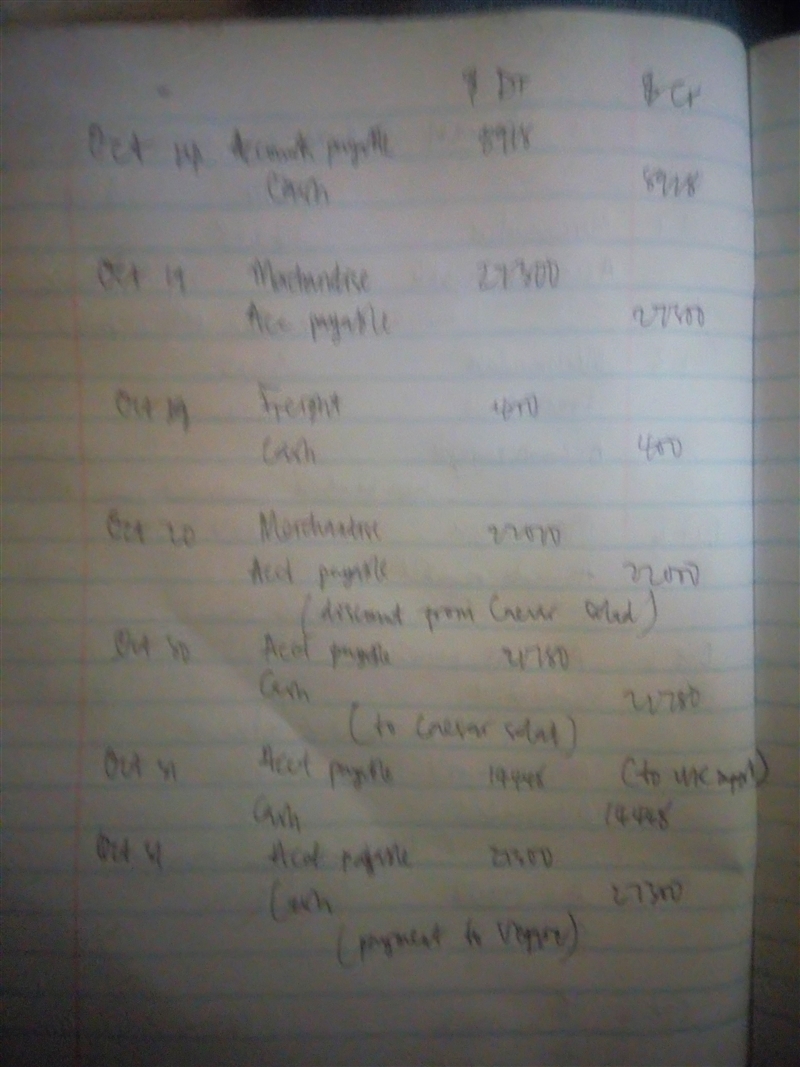 $ Dr $ Cr
Oct 14 Account payable 8918
Cash 8918
Oct 19 Merchandise 27300
Acc payable 27300
Oct 19 Freight 400
Cash 400
Oct 20 Merchandise 22000
Acct payable 22000
(discount from Caesar Salad)
Oct 30 Acct payable 21780
Cash 21780
(to Caesar salad)
Oct 31 Acct payable 14448 (to
Cash 14448
Oct 31 Acct payable 27300
Cash 27300
(payment to Veggie)